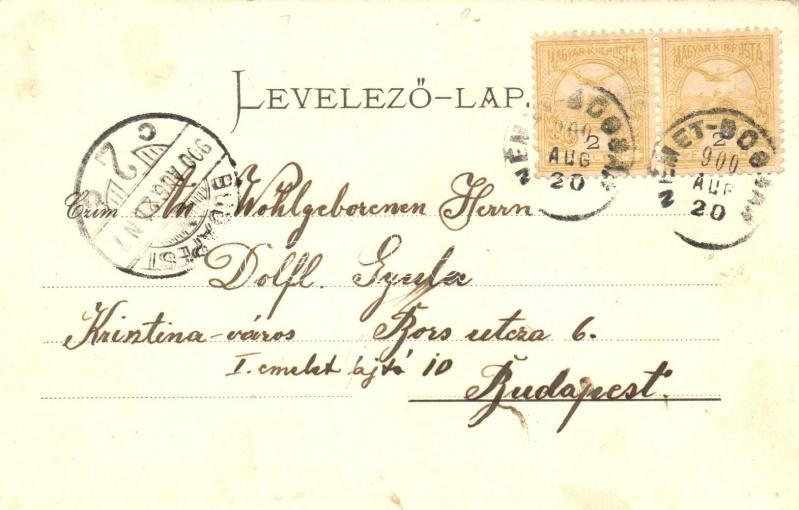 MAGYAR KIR. POSTA MAGYAR KIR. POSTA
2 2
NÉMET-BOGSÁN 900 AUG 20
NÉMET-BOGSÁN 900 AUG 20
LEVELEZŐ-LAP.
BUDAPEST 900 AUG
Czim An Wohlgeborenen Herrn
Dolfl. Gyula
Krintina-város Bors utcza 6.
I. emelet ajtó 10
Budapest.